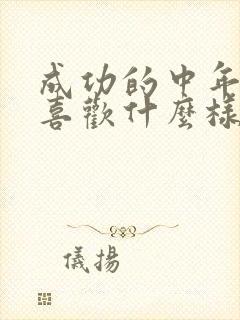 成功的中年
喜歡什麼樣
儀揚